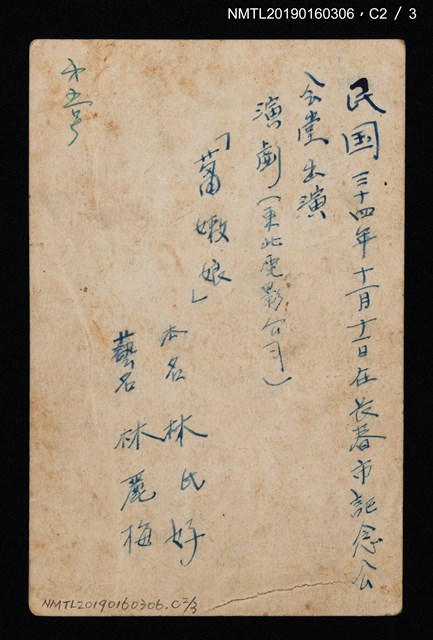 NMTL20190160306，C2 / 3
民国三十四年十一月十二日在长春市記念公
会堂出演
演劇（東北電影公司）
「蕭嫩娘」
本名 林氏好
藝名 林麗梅
NMTL20190160306.C2/3